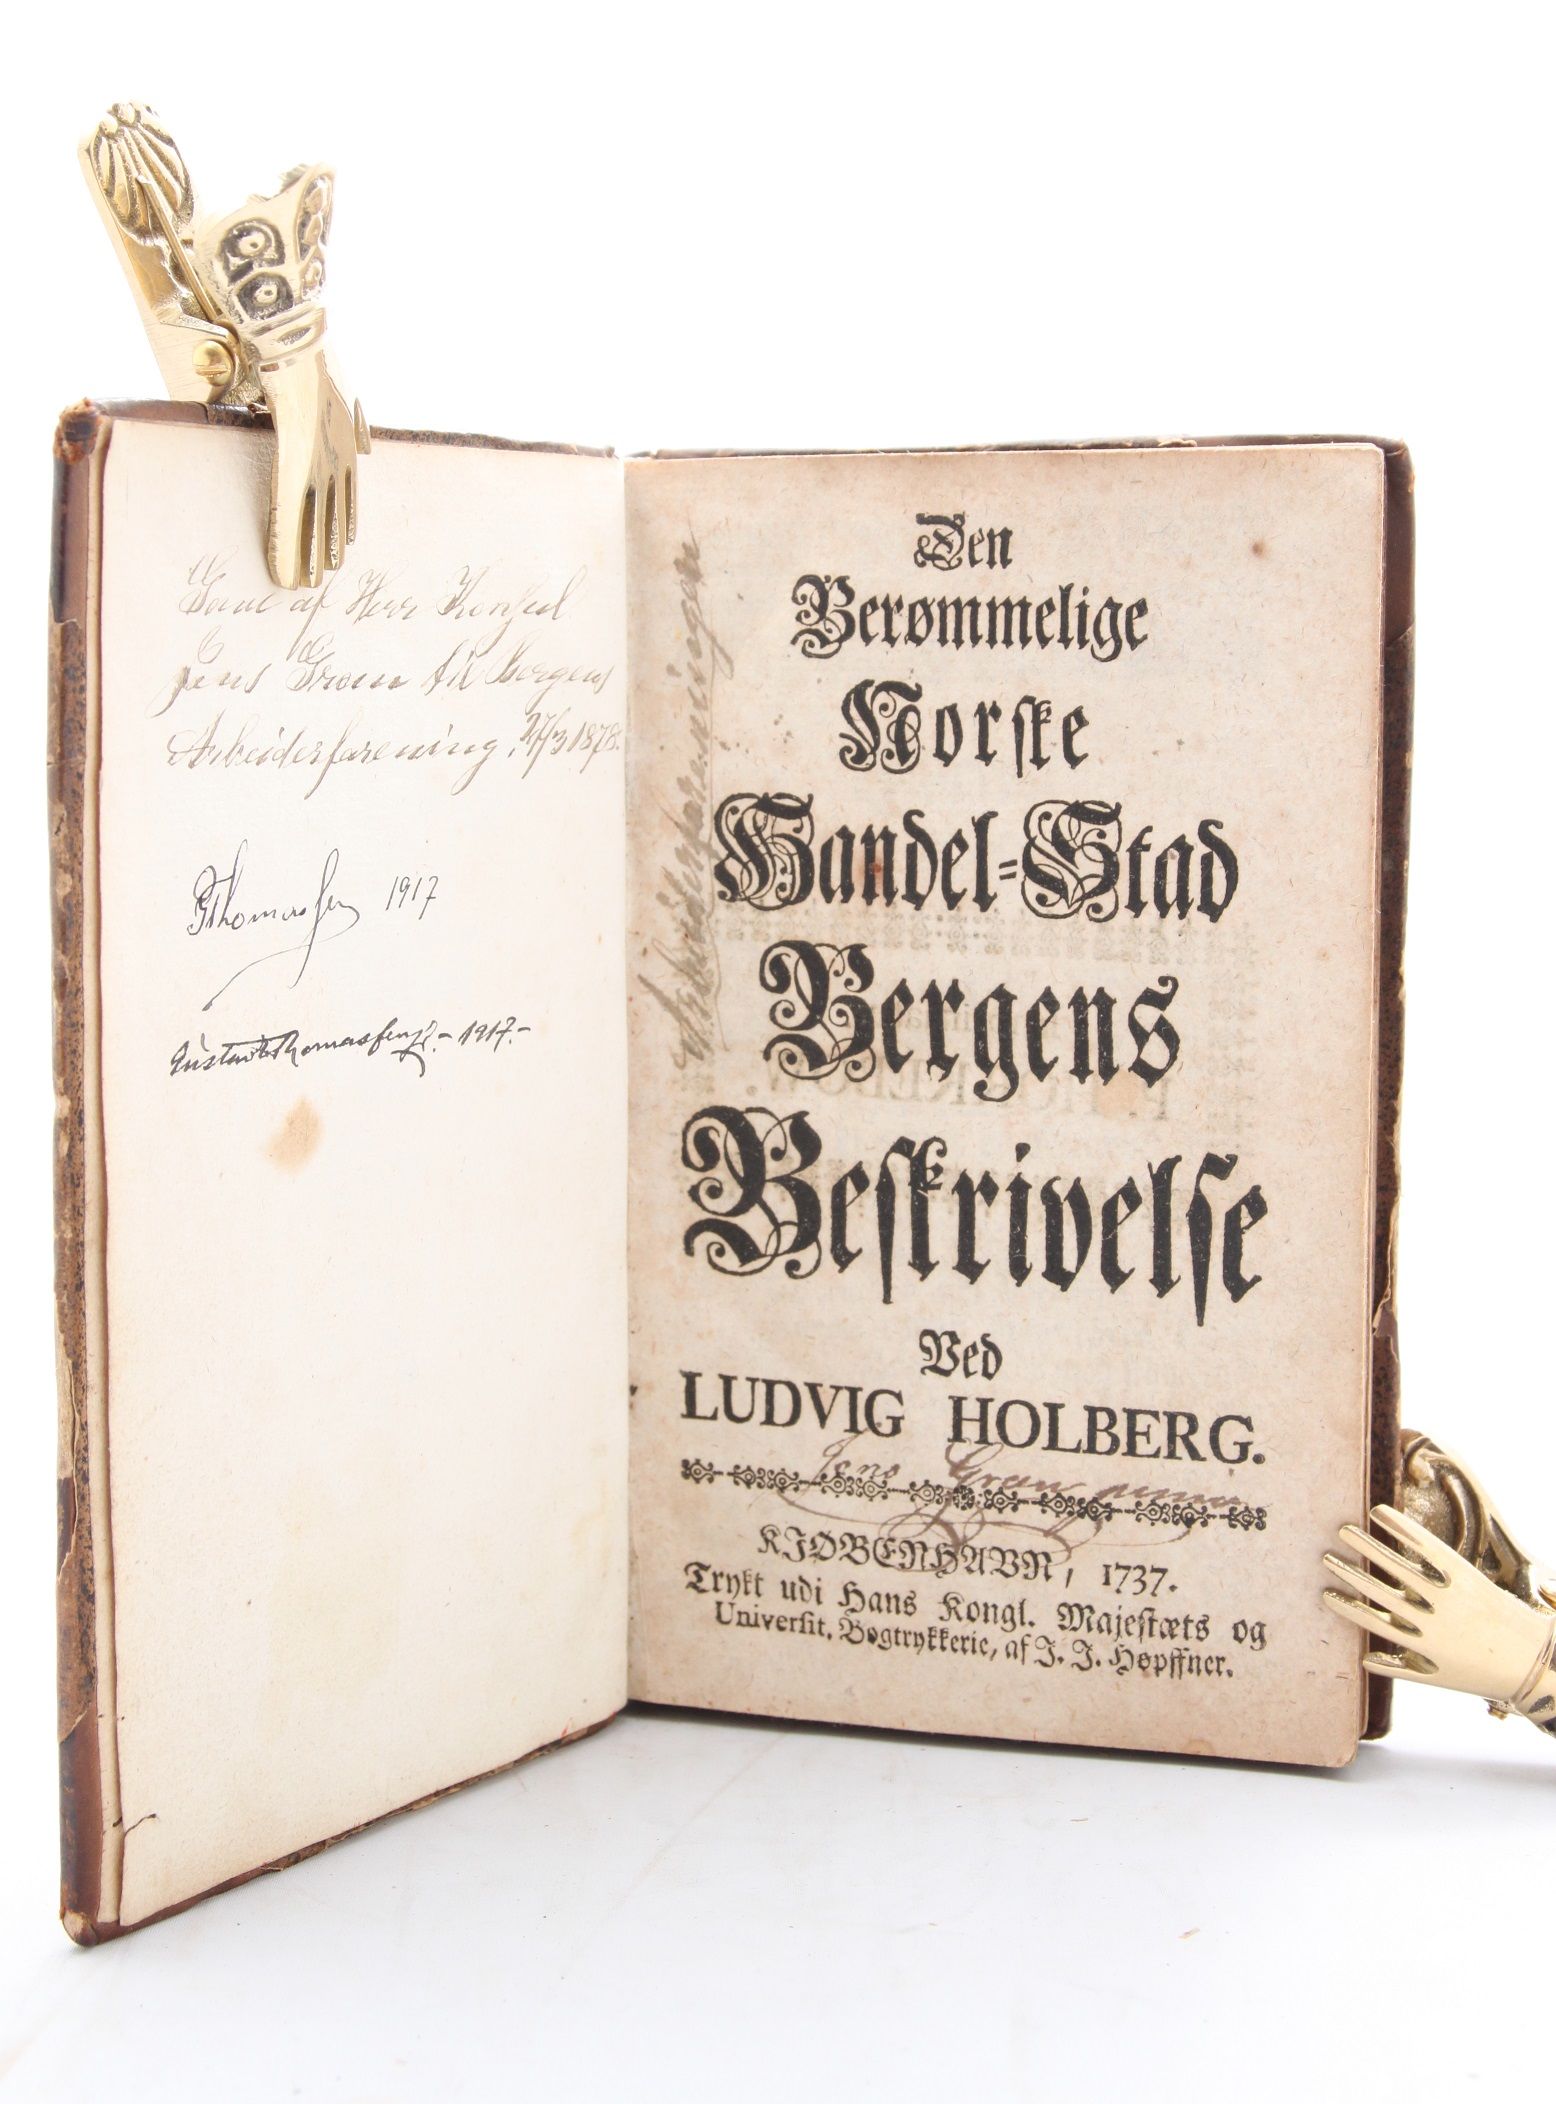 Gave af Herr Konsul
Jens Gram til Bergens
Arbeiderforening, 27/3 1878.
GThomassen 1917
Gustav Thomassen - 1917 -
Arbeiderforeningen
Den
Berømmelige
Norske
Handel-Stad
Bergens
Beskrivelse
Ved
LUDVIG HOLBERG.
Jens Gram junior
KIØBENHAVN, 1737.
Trykt udi Hans Kongl. Majestæts og
Universit. Bogtrykkerie, af J. J. Høpffner.